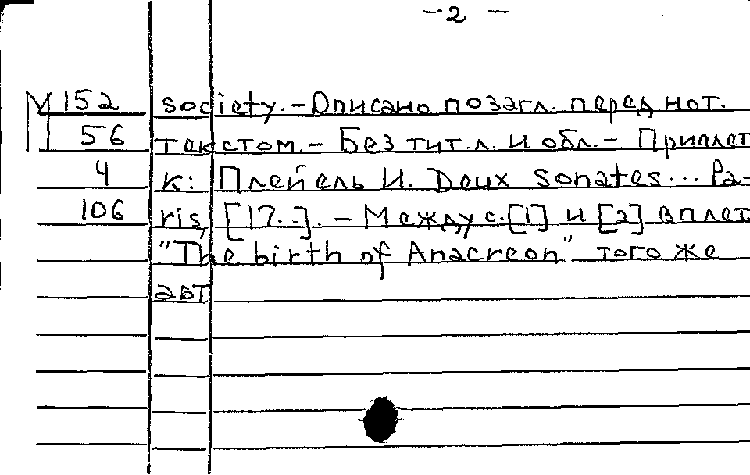 - 2 -
М 152 society. - Описано по загл. перед нот.
56 текстом. - Без тит. л. и обл. - Приплет
4 к: Плейель И. Deux sonates... Pa-
106 ris, [17..]. - Между с. [1] и [2] вплет
"The birth of Anacreon" того же
авт